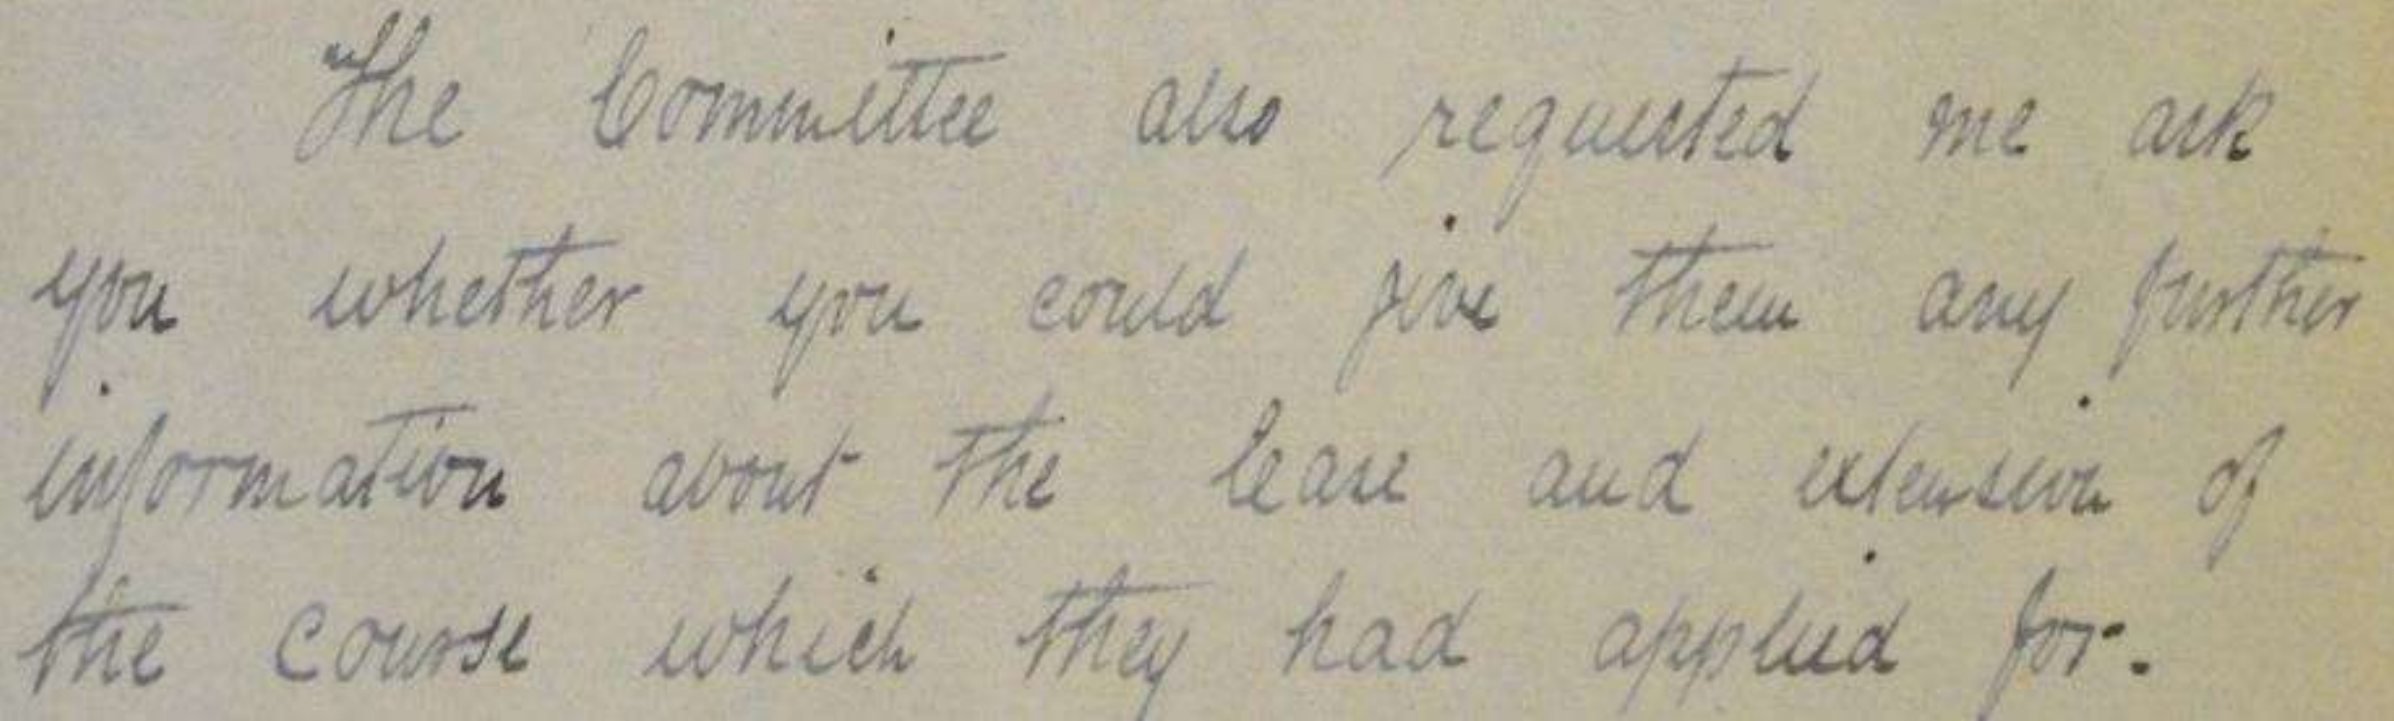 The Committee also requested me ask
you whether you could give them any further
information about the lease and extension of
the course which they had applied for.